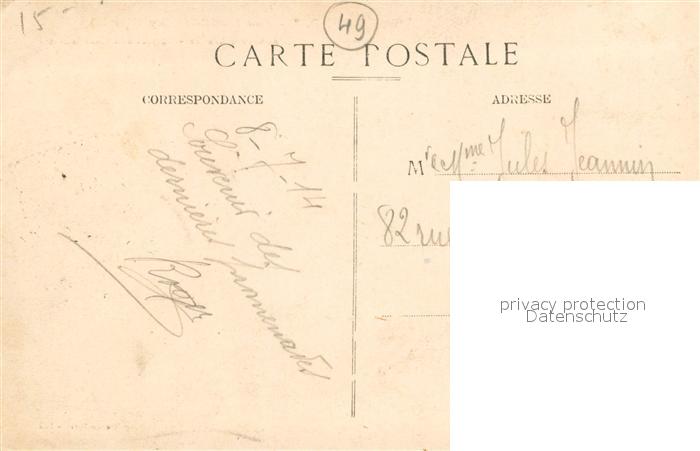 15
49
CARTE POSTALE
CORRESPONDANCE
8-7-14
Souvenir des
dernières promenades
Roger
ADRESSE
Mr & Mme Jules Jeannin
82 rue
privacy protection
Datenschutz